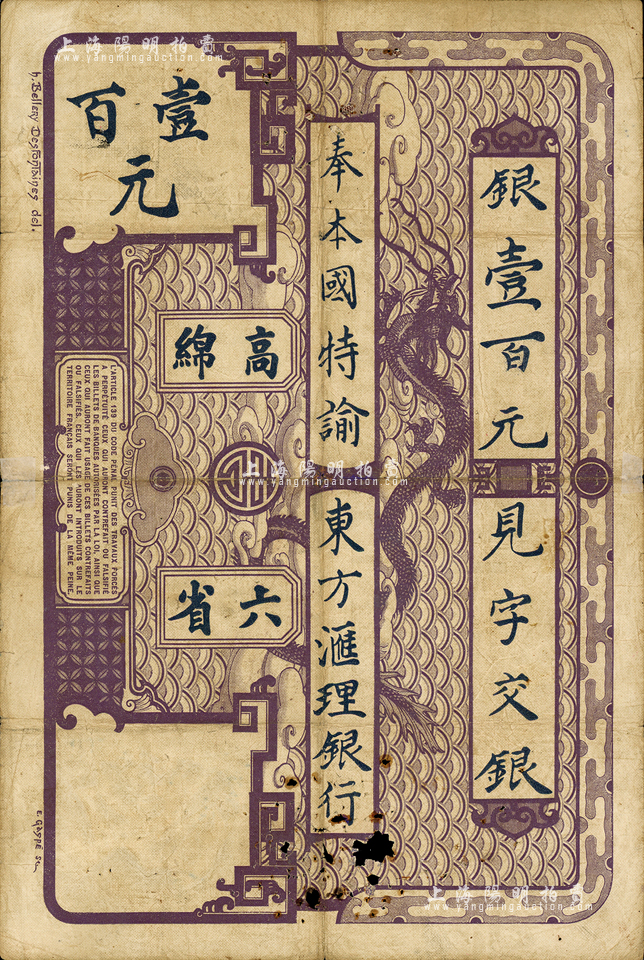 銀壹百元見字交銀
奉本國特諭東方滙理銀行
壹百
元
高綿
六省
L'ARTICLE 139 DU CODE PENAL PUNIT DES TRAVAUX FORCÉS
À PERPÉTUITÉ CEUX QUI AURONT CONTREFAIT OU FALSIFIÉ
LES BILLETS DE BANQUES AUTORISÉES PAR LA LOI, AINSI QUE
CEUX QUI AURONT FAIT USAGE DE CES BILLETS CONTREFAITS
OU FALSIFIÉS. CEUX QUI LES AURONT INTRODUITS SUR LE
TERRITOIRE FRANÇAIS SERONT PUNIS DE LA MÊME PEINE.
h. Bellery Desfontaines del.
上海陽明拍賣
www.yangmingauction.com
上海陽明拍賣
www.yangmingauction.com
上海陽明拍賣
www.yangmingauction.com